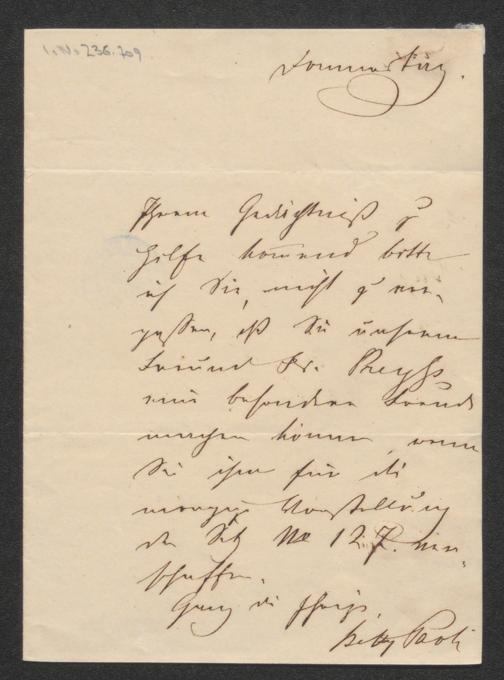 I. N. 236.709
Donnerstag.
Ihrem Gedächtniß zu
Hilfe kommend bitte
ich Sie, nicht zu ver-
gessen, daß Sie unserem
Freund Dr.
eine besondere Freude
machen können, wenn
Sie ihm für die
morgige Vorstellung
den Sitz No 127. ver-
schaffen.
Ganz die Ihrige,
Betty Paoli